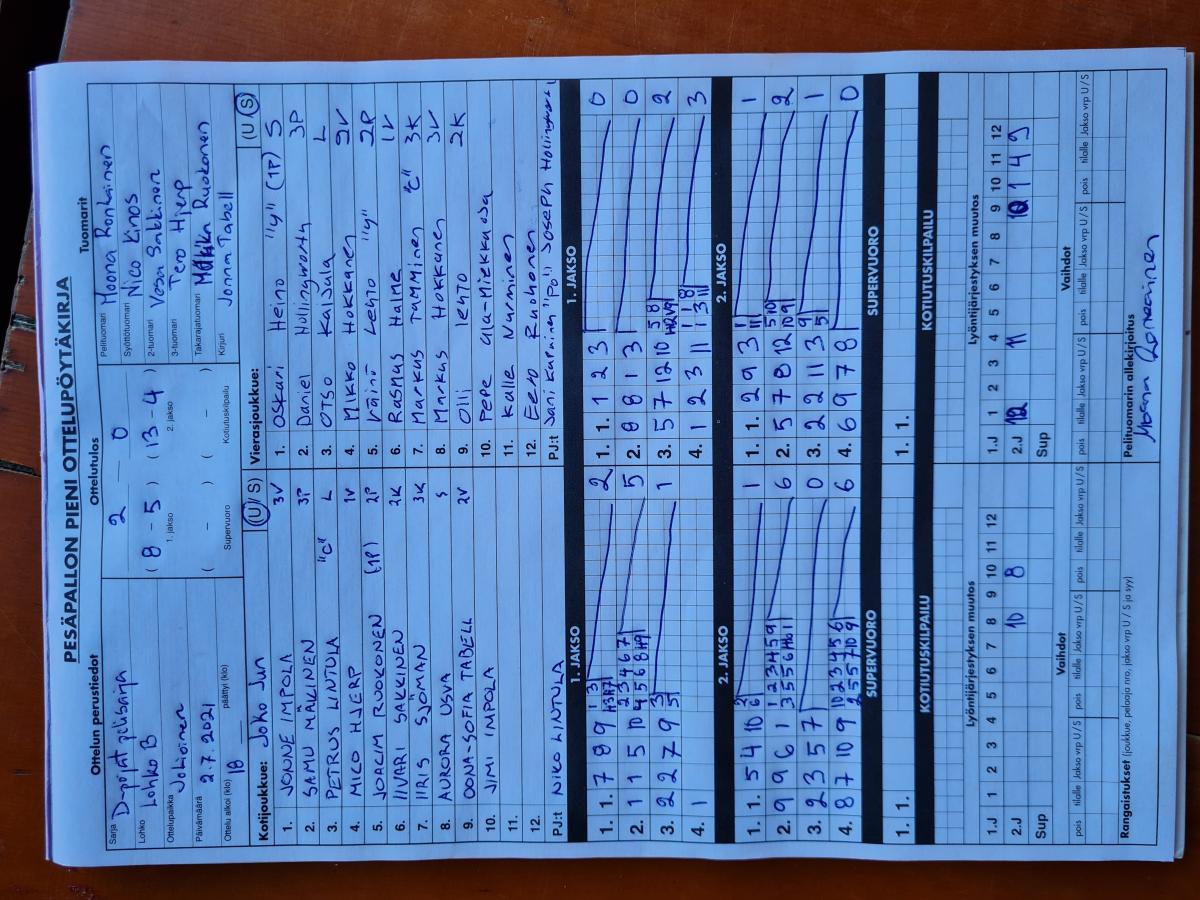 PESÄPALLON PIENI OTTELUPÖYTÄKIRJA
Ottelun perustiedot
Sarja D-pojat
Lohko Lohko B
Ottelupaikka Jokioinen
Päivämäärä 2.7.2021
Ottelu alkoi (klo) 18 päättyi (klo)
Ottelutulos
2 0
( 8 - 5 ) ( 13 - 4 )
1. jakso 2. jakso
( - ) ( - )
Supervuoro Kotiutuskilpailu
Tuomarit
Pelituomari Moona Ronkainen
Syöttötuomari Nico Linos
2-tuomari Vesa Sakkinen
3-tuomari Tero Hjerp
Takarajatuomari Ruokonen
Kirjuri Jonna Tabell
Kotijoukkue: Joko Jun (U/S)
1. JONNE IMPOLA 3V
2. SAMU MÄKINEN 3P
3. PETRUS LINTULA "C" L
4. MICO HJERP 1V
5. JOACIM RUOKONEN (1P) 2P
6. IIVARI SAKKINEN 2K
7. IIRIS SJÖMAN 3K
8. AURORA USVA S
9. OONA-SOFIA TABELL 2V
10. JIMI IMPOLA
11.
12.
PJ:t NICO LINTULA
Vierasjoukkue: (U/S)
1. Oskari Heino "y" (1P) S
2. Daniel Hollingworth 3P
3. OTSO Kaijala L
4. Mikko Hokkanen 2V
5. Väinö Lehto "y" 2P
6. Rasmus Halme 1V
7. Markus Tamminen "C" 3K
8. Markus Hokkanen 3V
9. Olli lehto 2K
10. Pepe Ala-Miekkaoja
11. Kalle Nurminen
12. Eero Ruohonen
PJ:t Jani Kurninen "PJ" Joseph
1. JAKSO
1. 1. 7 8 9 2
2. 1 1 5 10 5
3. 2 2 7 9 1
4. 1
2. JAKSO
1. 1. 5 4 10 1
2. 9 9 6 1 6
3. 2 3 5 7 0
4. 8 7 10 9 6
SUPERVUORO
1. 1.
KOTIUTUSKILPAILU
1. JAKSO
1. 1. 1 2 3 0
2. 8 8 1 3 0
3. 5 7 12 10 2
4. 1 2 3 11 3
2. JAKSO
1. 1. 2 9 3 1
2. 5 7 8 12 2
3. 2 2 11 3 1
4. 6 9 7 8 0
SUPERVUORO
1. 1.
KOTIUTUSKILPAILU
Lyöntijärjestyksen muutos
1.J 1 2 3 4 5 6 7 8 9 10 11 12
2.J 10 8
Sup
Vaihdot
pois tilalle Jakso vrp U / S pois tilalle Jakso vrp U / S pois tilalle Jakso vrp U / S
Lyöntijärjestyksen muutos
1.J 1 2 3 4 5 6 7 8 9 10 11 12
2.J 12 11 10 1 4 9
Sup
Vaihdot
pois tilalle Jakso vrp U / S pois tilalle Jakso vrp U / S pois tilalle Jakso vrp U / S
Rangaistukset (joukkue, pelaaja nro, jakso vrp U / S ja syy)
Pelituomarin allekirjoitus
Moona Ronkainen